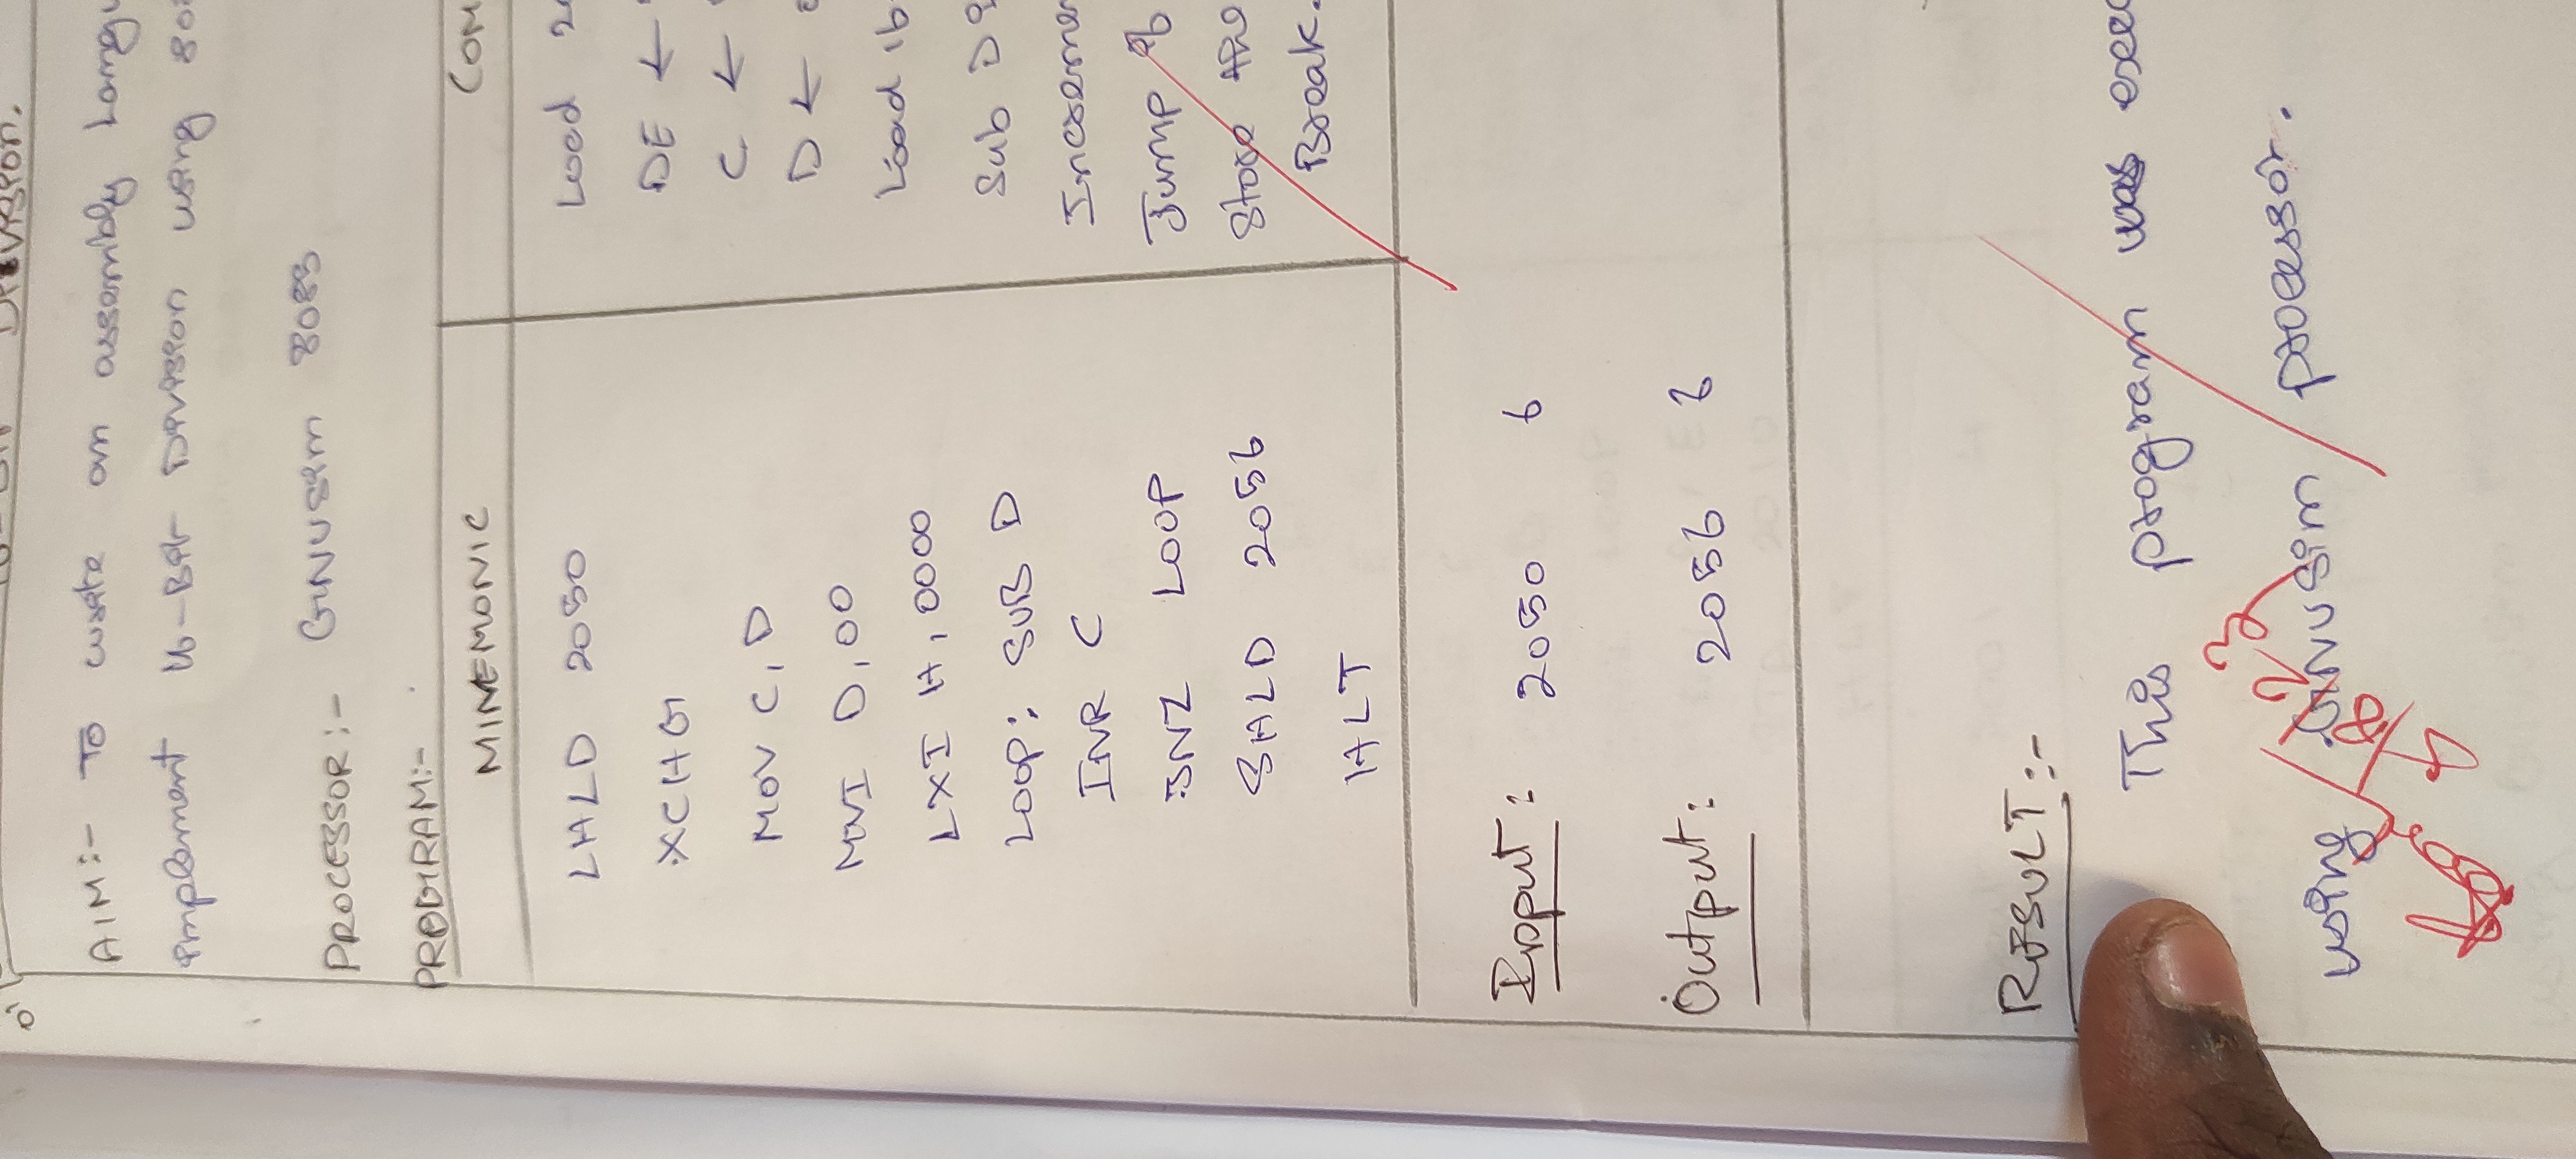 Division.
AIM:- To write an assembly Langu
implement 16-Bit Division using 80
PROCESSOR:- GNUsim 8085
PROGRAM:-
MINEMONIC COM
LHLD 2050 Load 2
XCHG DE ←
MOV C, D C ←
MVI D, 00 D ←
LXI H, 0000 Load 16
LOOP: SUB D Sub D
INR C Increme
JNZ LOOP Jump if
SHLD 2056 Store the
HLT Break.
Input: 2050 6
Output: 2056 6
RESULT:-
This program was exec
using GNUsim processor.